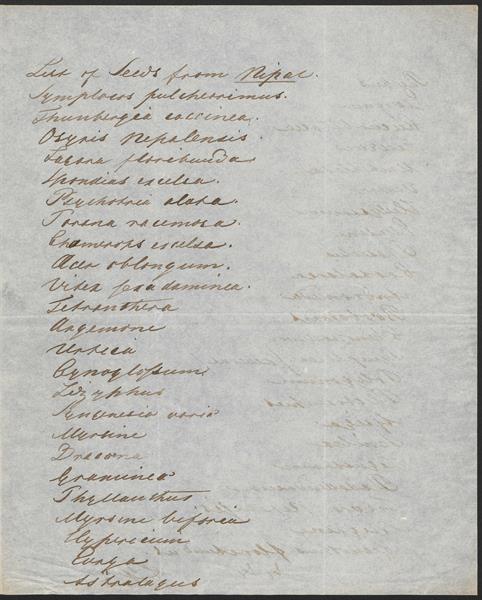 List of Seeds from Nipal.
Symplocos pulcherrimus.
Thunbergea coccinea.
Osyris Nepalensis.
floribunda
Spondias excelsa.
Psychotria alata.
Porana racemosa.
Chamerops excelsa.
Acer oblongum.
Vitex
Tetranthera
Argemone
Urtica
Cynoglossum
Zizyphus
varia
Myrsine
Dracona
Graminea
Phyllanthus
Myrsine
Hypericum
Astralagus